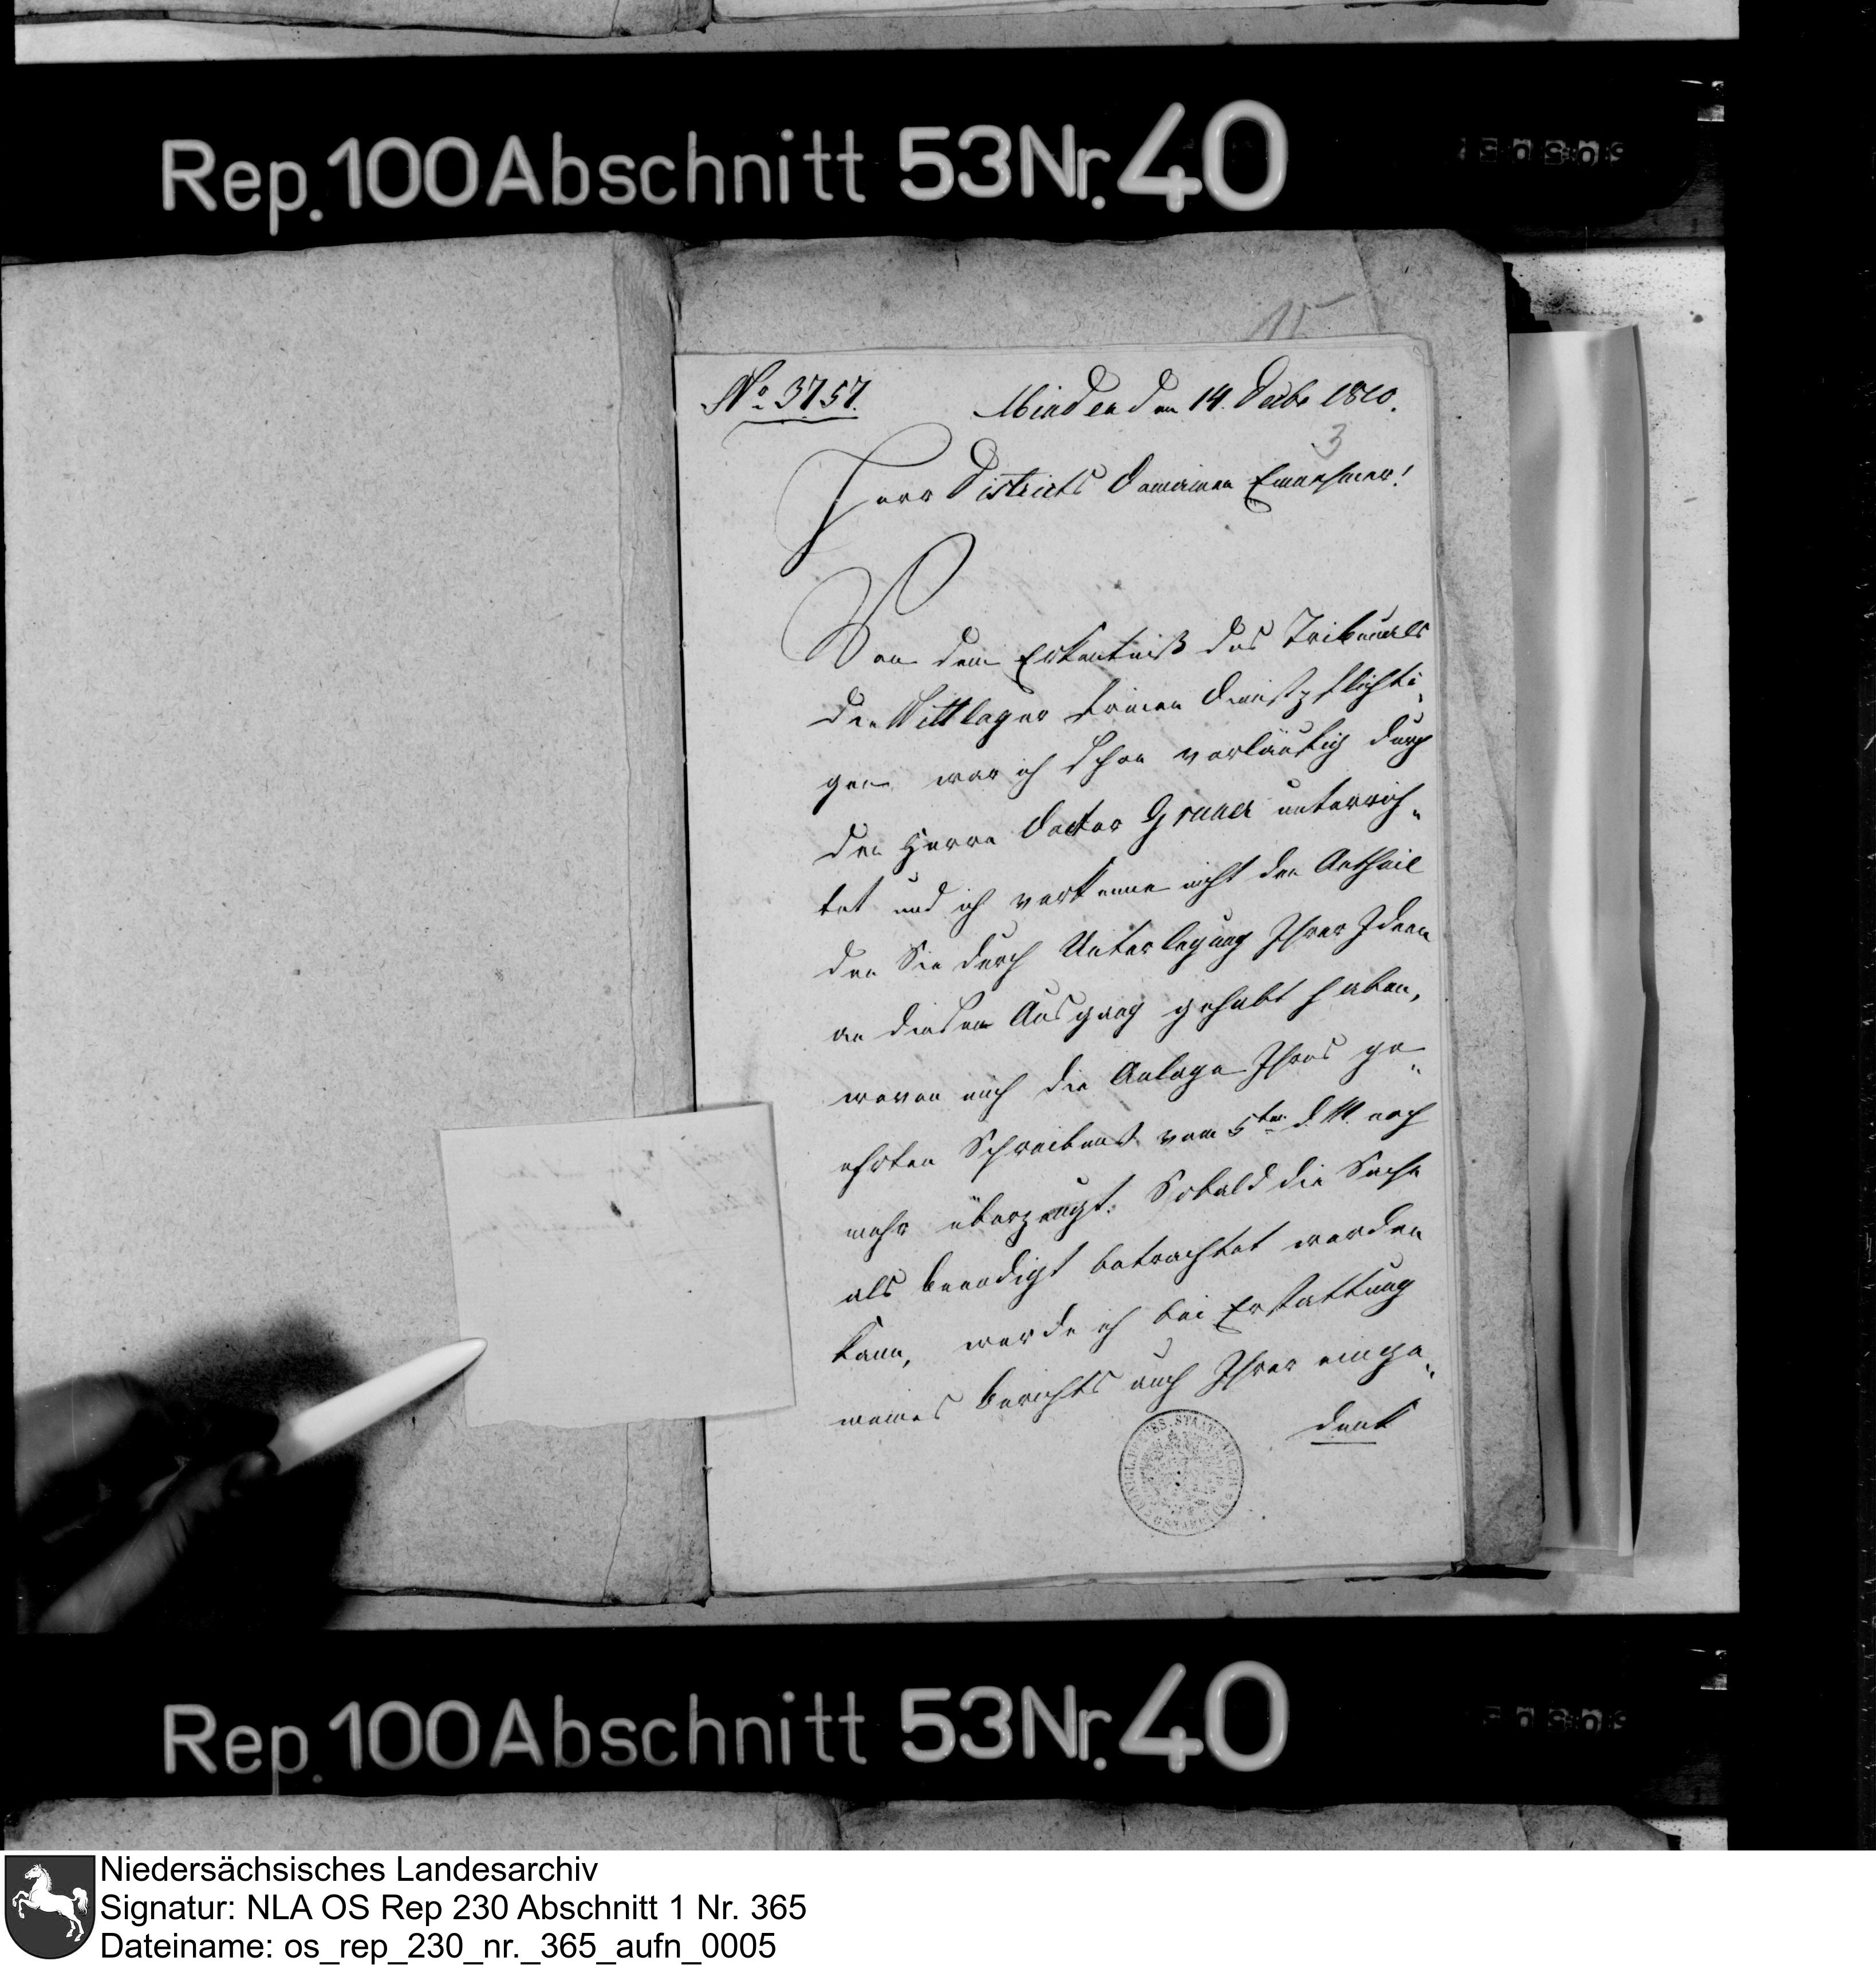 Rep. 100 Abschnitt 53 Nr. 40
15
No 3757.
Minden den 14. Decbr 1810.
3
Herr Districts Domainen Einnehmer!
Von dem Erkentniß des Tribunals
den Wittlager freien Dienstpflichti„
gen war ich schon vorläufig durch
den Herrn Doctor Gruner unterrich„
tet und ich verkenne nicht den Antheil
den Sie durch Unterlegung Ihrer Ideen
an diesem Ausgang gehabt haben,
wovon mich die Anlage Ihres ge„
ehrten Schreibens vom 5ten d. M. noch
mehr überzeugt. Sobald die Sache
als beendigt betrachtet werden
kann, werde ich bei Erstattung
meines Berichts auch Ihrer einge„
denk
Rep. 100 Abschnitt 53 Nr. 40
Niedersächsisches Landesarchiv
Signatur: NLA OS Rep 230 Abschnitt 1 Nr. 365
Dateiname: os_rep_230_nr._365_aufn_0005